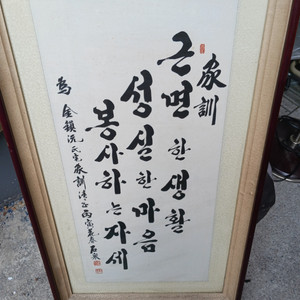 家訓
근면한 생활
성실한 마음
봉사하는 자세
爲 金鎭浣氏宅 家訓